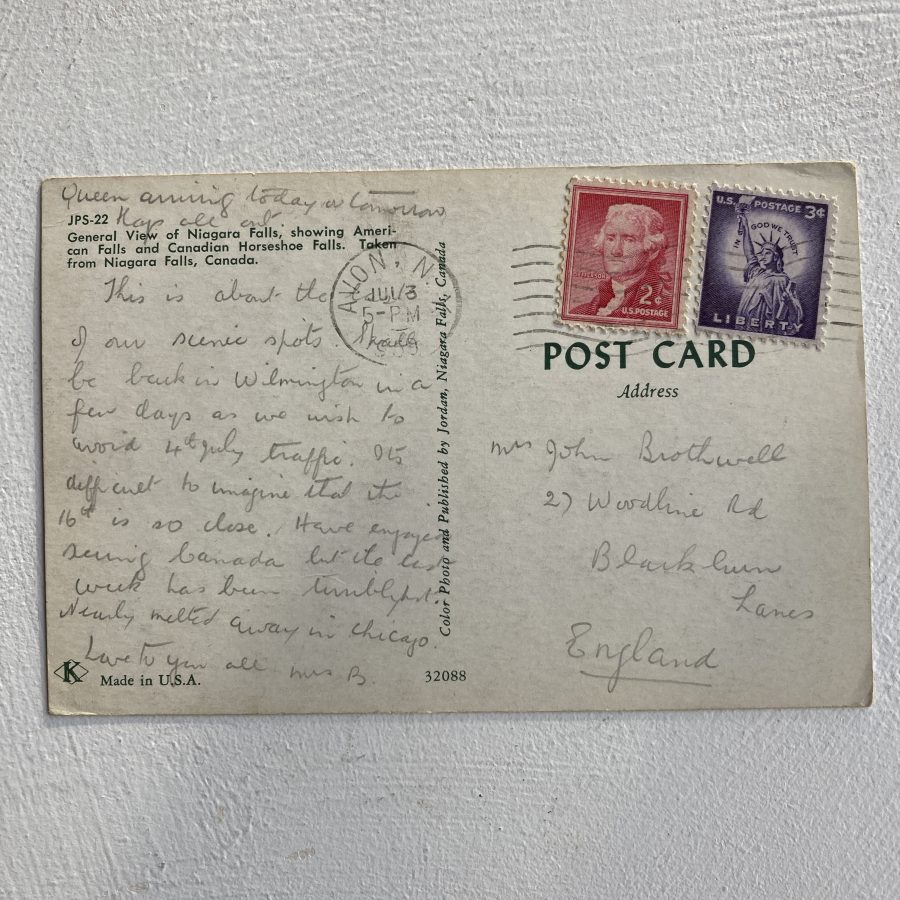 Queen arriving today or tomorrow
flags all out.
JPS-22
General View of Niagara Falls, showing Ameri-
can Falls and Canadian Horseshoe Falls. Taken
from Niagara Falls, Canada.
This is about the
of our scenic spots. Shall
be back in Wilmington in a
few days as we wish to
avoid 4th July traffic. Its
difficult to imagine that the
16th is so close. Have enjoyed
seeing Canada but the last
week has been terribly hot.
Nearly melted away in Chicago.
Love to you all Mrs B.
K
Made in U.S.A.
32088
AVON, N.
JUL 3
5-PM
Color Photo and Published by Jordan, Niagara Falls, Canada
JEFFERSON
2¢
U.S. POSTAGE
U.S. POSTAGE 3¢
IN GOD WE TRUST
LIBERTY
POST CARD
Address
Mrs John Brothwell
27 Woodline Rd
Blackburn
Lancs
England